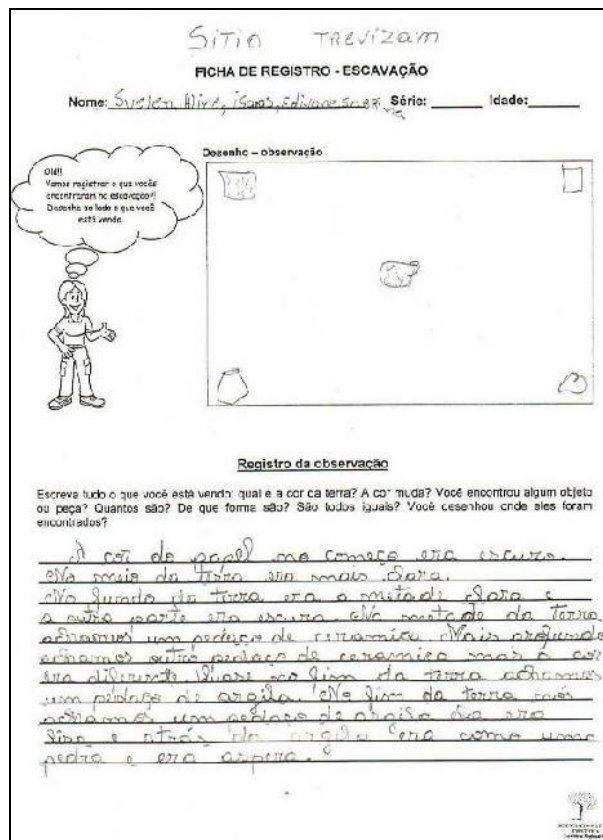 Sitio Trevizam
FICHA DE REGISTRO - ESCAVAÇÃO
Nome: Suelen, Aline, Isaras, Ediwane Série: Idade:
Desenho – observação
Oi!!!
Vamos registrar o que vocês
encontraram na escavação?!
Desenhe ao lado o que você
está vendo.
Registro da observação
Escreva tudo o que você está vendo: qual é a cor da terra? A cor muda? Você encontrou algum objeto
ou peça? Quantos são? De que forma são? São todos iguais? Você desenhou onde eles foram
encontrados?
A cor do papel no começo era escuro.
No meio da terra era mais clara.
No fundo da terra era a metade clara e
a outra parte era escura. Na metade da terra
achamos um pedaço de ceramica. Mais profundo
achamos outro pedaço de ceramica mas a cor
era diferente. Quase no fim da terra achamos
um pedaço de argila. No fim da terra nós
achamos um pedaço de argila era
lisa e atrás da argila era como uma
pedra e era aspera.